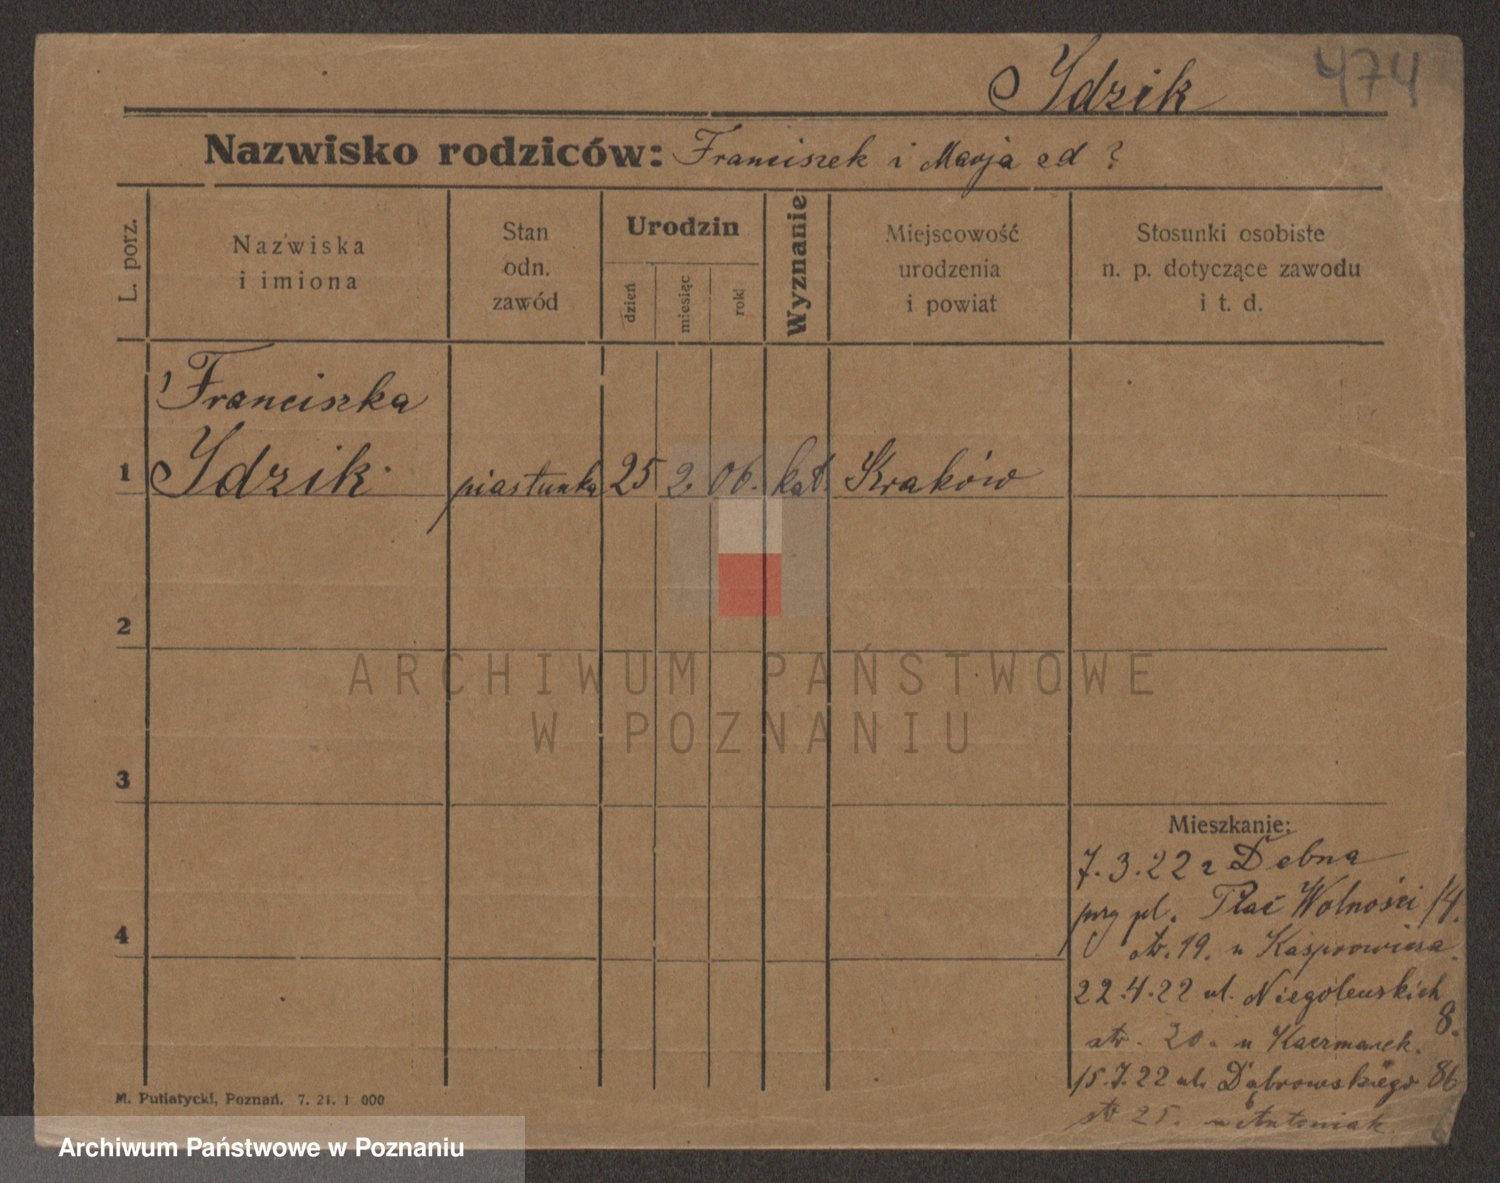 Idzik 474
Nazwisko rodziców: Franciszek i Marja ed ?
L. porz.
Nazwiska
i imiona
Stan
odn.
zawód
Urodzin
dzień
miesiąc
rok
Wyznanie
Miejscowość
urodzenia
i powiat
Stosunki osobiste
n. p. dotyczące zawodu
i t. d.
1 Franciszka
1 Idzik piastunka 25 2. 06. kat. Kraków
2
ARCHIWUM PAŃSTWOWE
W POZNANIU
3
Mieszkanie:
7.3.22 z Dębna
przy pl. Plac Wolności 14.
str. 19. u Kasprowicza.
4
22.4.22 ul. Niegolewskich
8.
str. 20. u Kaczmarek.
15.7.22 ul. Dąbrowskiego 86
str 25. u Antoniak.
M. Putiatycki, Poznań. 7. 21. 1 000
Archiwum Państwowe w Poznaniu